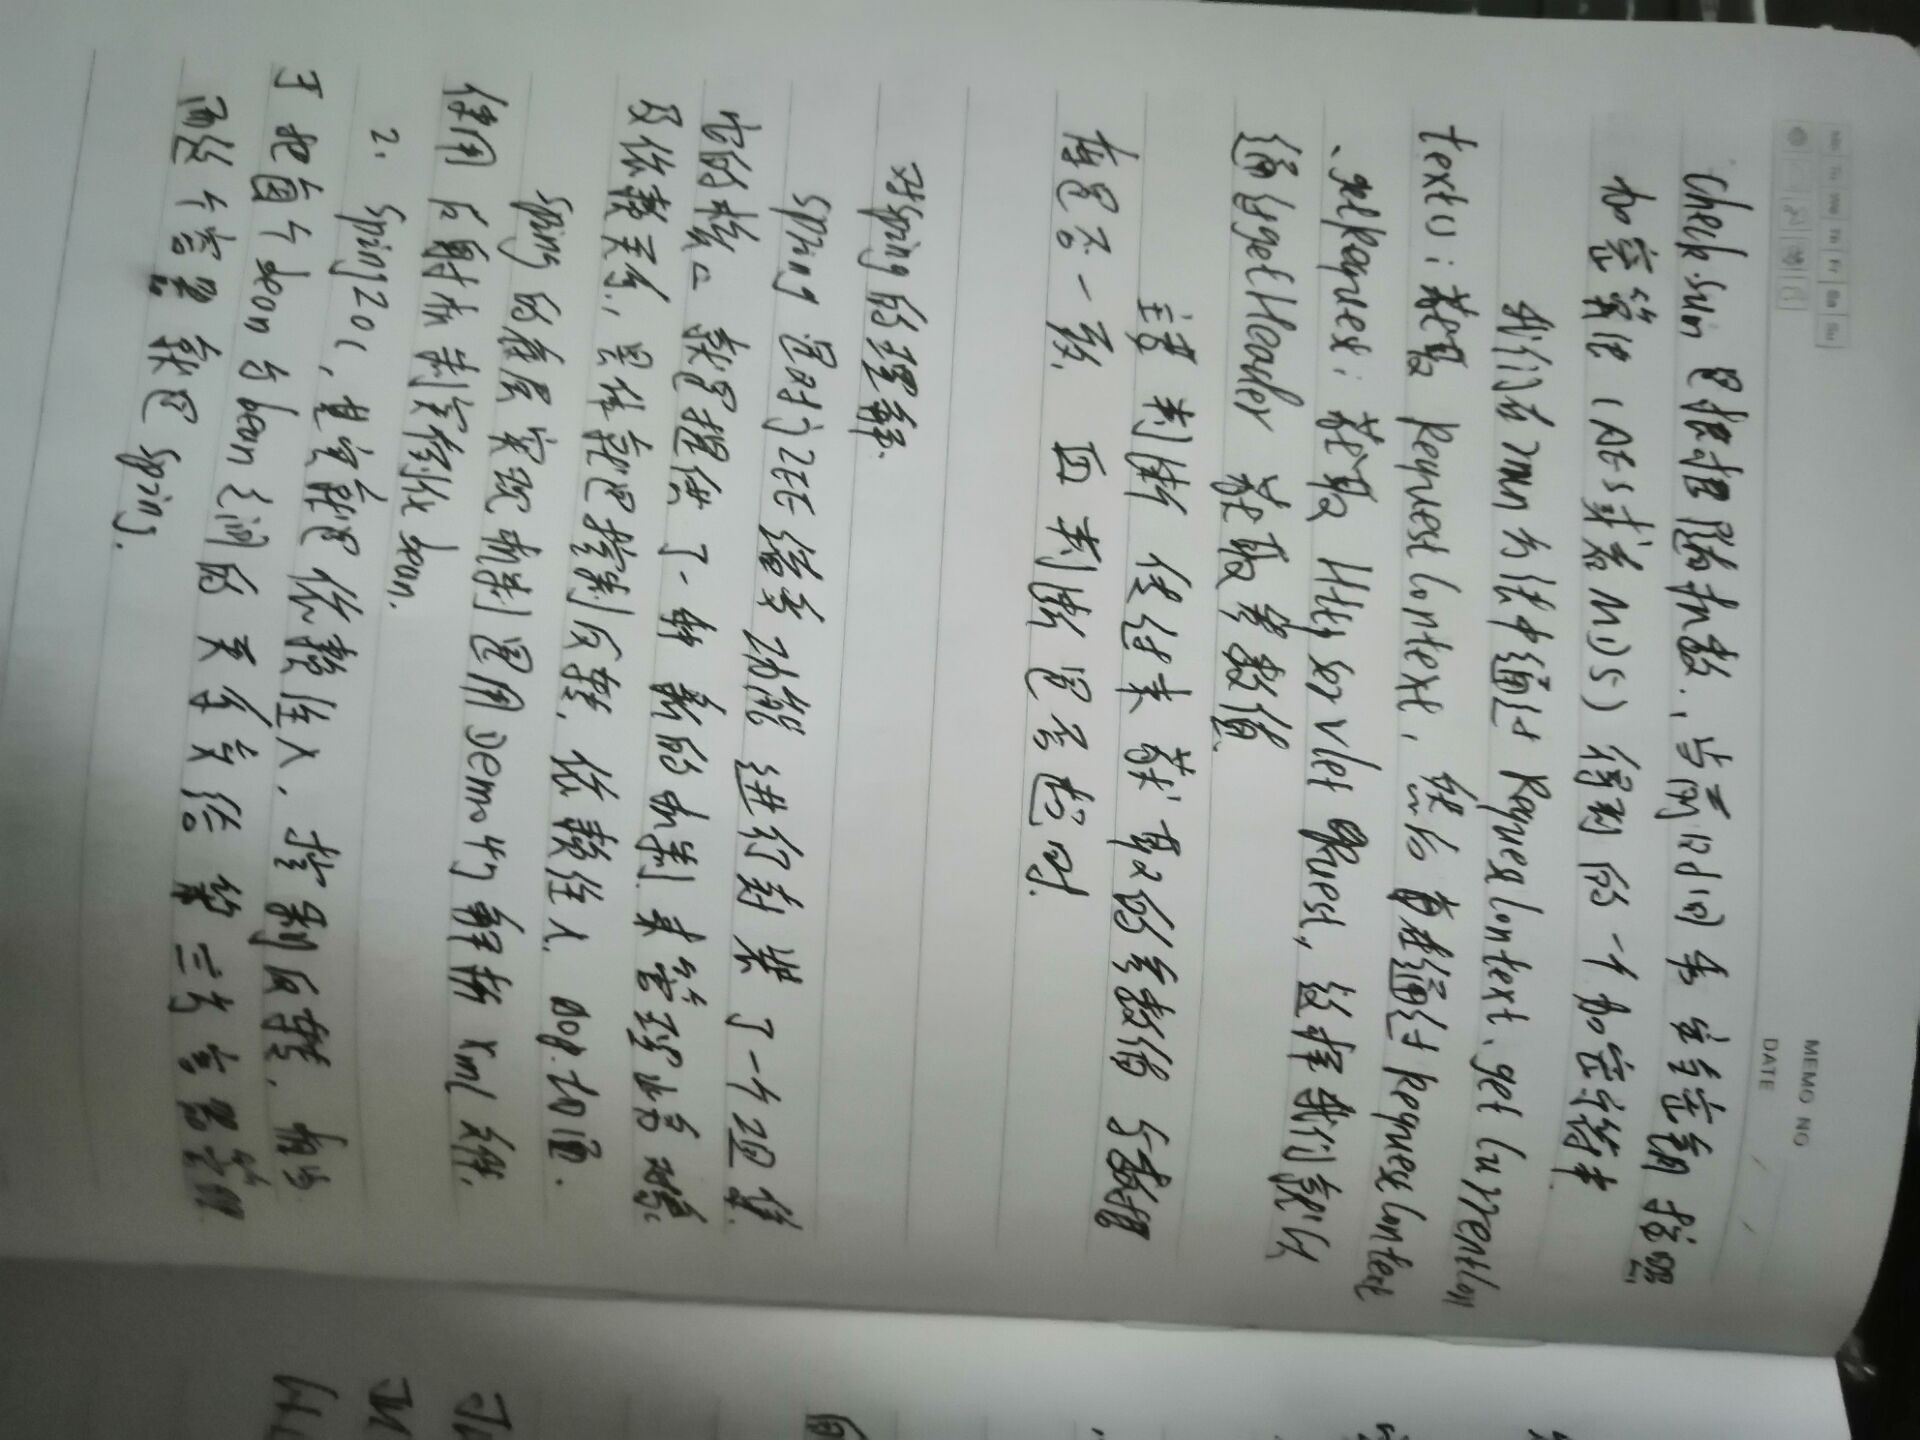 MEMO NO
DATE
Mo Tu We Th Fr Sa Su
Check sum 是根据随机数, 当前时间
加密算法 (AES或者MD5) 得到的一个加密结果
我们在run方法中通过RequestContext.getCurrentCon
text(): 获取RequestContext, 然后在通过RequestContext
.getRequest: 获取HttpServletRequest, 这样我们就可以
通过getHeader 获取参数值
主要判断传过来获取的参数值与数据
库是否一致, 且判断是否超时.
对Spring的理解.
Spring 是对J2EE 综合功能进行封装了一个边集.
它的核心就是提供了一种新的机制来管理业务对象
及依赖关系, 具体就是控制反转, 依赖注入, aop切面.
Spring 的底层实现机制是用Demo4j解析 Xml 文件,
使用反射机制实例化bean.
2. SpringIoc, 其实就是依赖注入、控制反转, 相当
于把每个bean与bean之间的关系交给第三方容器管理
而这个容器就是Spring.